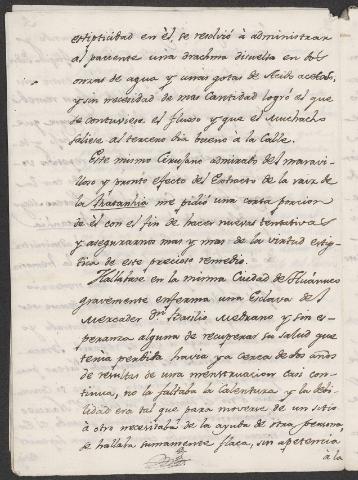 estipticidad en èl, se resolviò à administrar
al paciente una drachma disuelta en dos
onzas de agua y unas gotas de Acido acetoso,
y sin necesidad de mas Cantidad logró el que
se contuviese el fluxo y que el Muchacho
saliese al tercero dia bueno à la Calle.
Este mismo Cirujano admirado del maravi-
lloso y pronto efecto del Extracto de la raiz de
la Ratanhia me pidiò una corta porcion
de èl con el fin de hacer nuevas tentativas
y asegurarnos mas y mas de la virtud estip-
tica de este precioso remedio.
Hallabase en la misma Ciudad de Huánuco
gravemente enferma una Esclava del
Mercader Dn. Basilio Medrano y sin es-
peranza alguna de recuperar su salud que
tenia perdida havia ya cerca de dos años
de resultas de una menstruacion casi con-
tinua, no la faltaba la Calentura y la debi-
lidad era tal que para moverse de un sitio
à otro necesitaba de la ayuda de otra persona,
se hallaba sumamente flaca, sin apetencia
à la